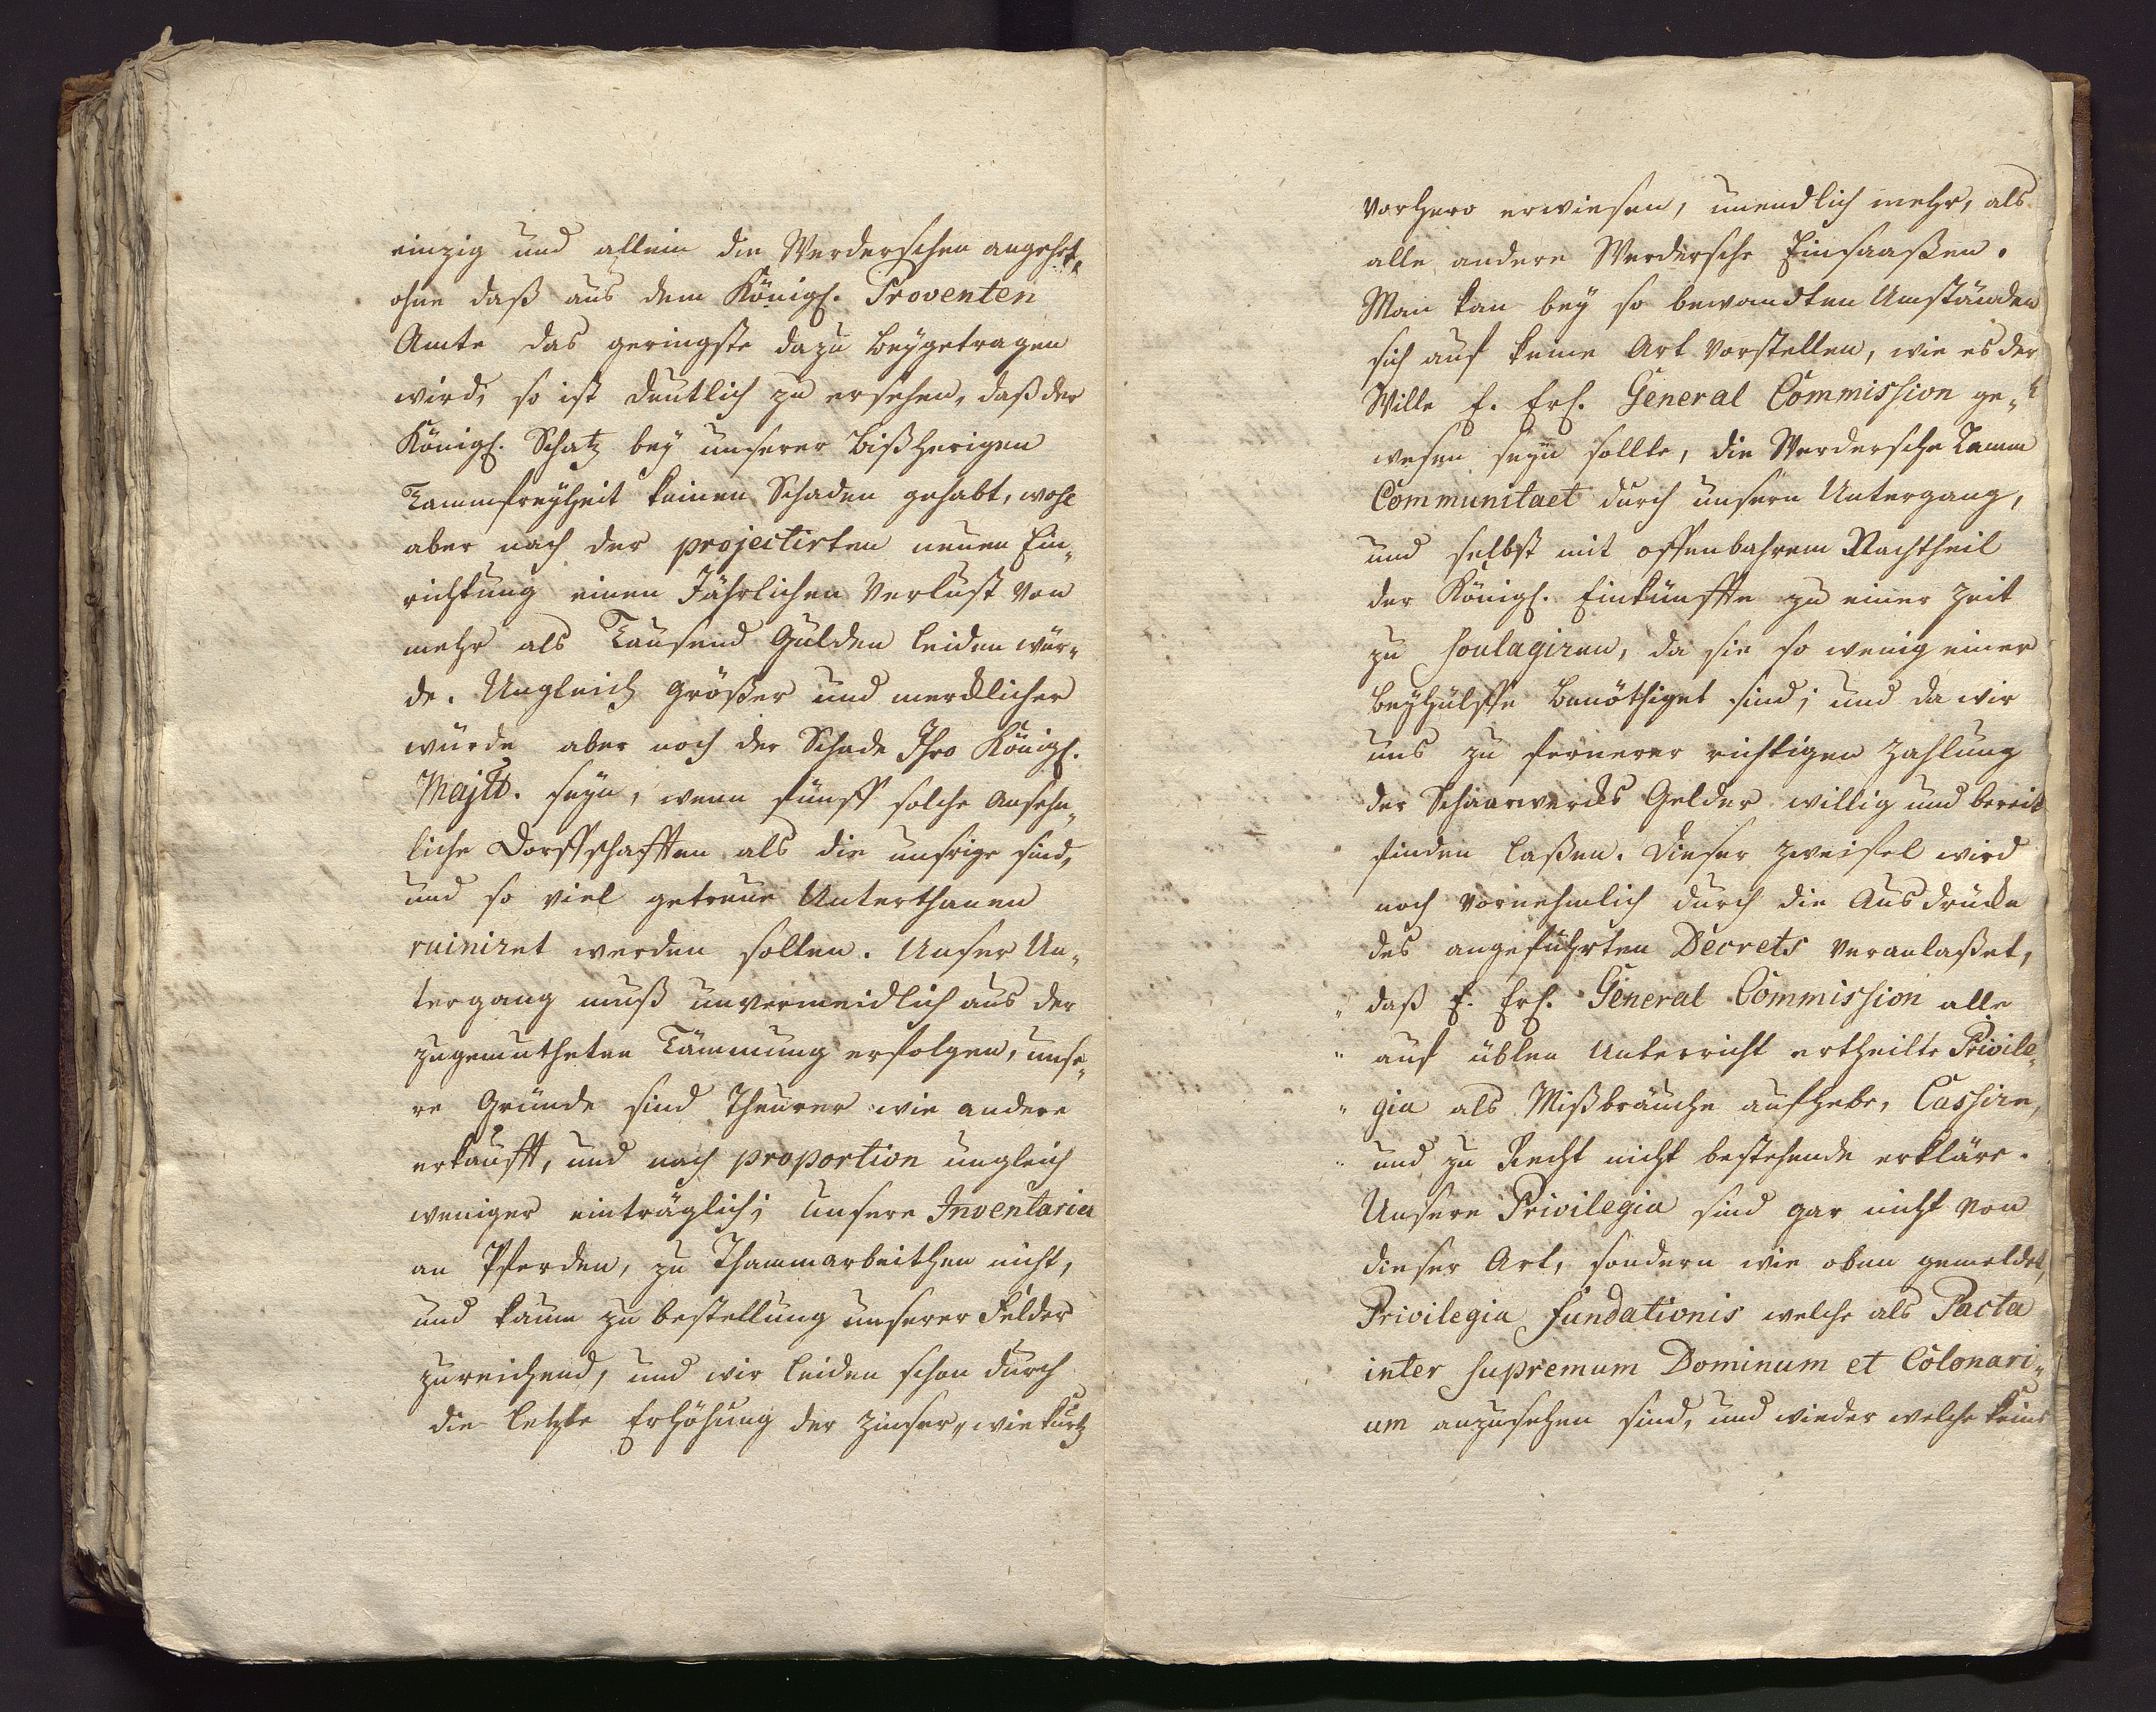 einzig und allein die Werderschen angehet,
ohne daß aus dem Königl. Proventen
Amte das geringste dazu beygetragen
wird, so ist deutlich zu ersehen, daß der
Königl. Schatz bey unserer bißherigen
Tammfreyheit keinen Schaden gehabt, wohl
aber nach der projectirten neuen Ein„
richtung einen Jährlichen Verlust von
mehr als Tausend Gulden leiden wür„
de. Ungleich größer und mercklicher
würde aber noch der Schade Ihro Königl.
Majtt. seyn, wenn fünff solche ansehn„
liche Dorffschafften als die unsrige sind,
und so viel getreue Unterthanen
ruiniret werden solten. Unser Un„
tergang muß unvermeidlich aus der
zugemutheten Tämmung erfolgen, unse„
re Gründe sind Theurer wie andere
erkaufft, und nach proportion ungleich
weniger einträglich; Unsere Inventaria
an Pferden, zu Thammarbeithen nicht,
und kaum zu bestellung unserer Felder
zureichend, und wir leiden schon durch
die letzte Erhöhung der Zinser, wie kurtz
vorhero erwiesen, unendlich mehr, als
alle andere Werdersche Einsaaßen.
Man kan bey so bewandten Umständen
sich auf keine Art vorstellen, wie es der
Wille E. Erl. General Commission ge„
wesen seyn sollte, die Werdersche Tamm
Communitaet durch unsern Untergang,
und selbst mit offenbahrem Nachtheil
der Königl. Einkünffte zu einer Zeit
zu soulagiren, da sie so wenig einer
Beyhülffe benöthiget sind; und da wir
uns zu fernerer richtigen Zahlung
der Schaarwercks Gelder willig und bereit
finden laßen. Dieser Zweifel wird
noch vornehmlich durch die Ausdrücke
des angeführten Decrets veranlaßet,
„ daß E. Erl. General Commission alle
„ auf üblen Unterricht ertheilte Privile„
„ gia als Mißbräuche aufhebe, Cassire,
„ und zu Recht nicht bestehende erkläre.
Unsere Privilegia sind gar nicht von
dieser Art, sondern wie oben gemeldet,
Privilegia fundationis welche als Pacta
inter supremum Dominum et Colonari„
um anzusehen sind, und wieder welche keine